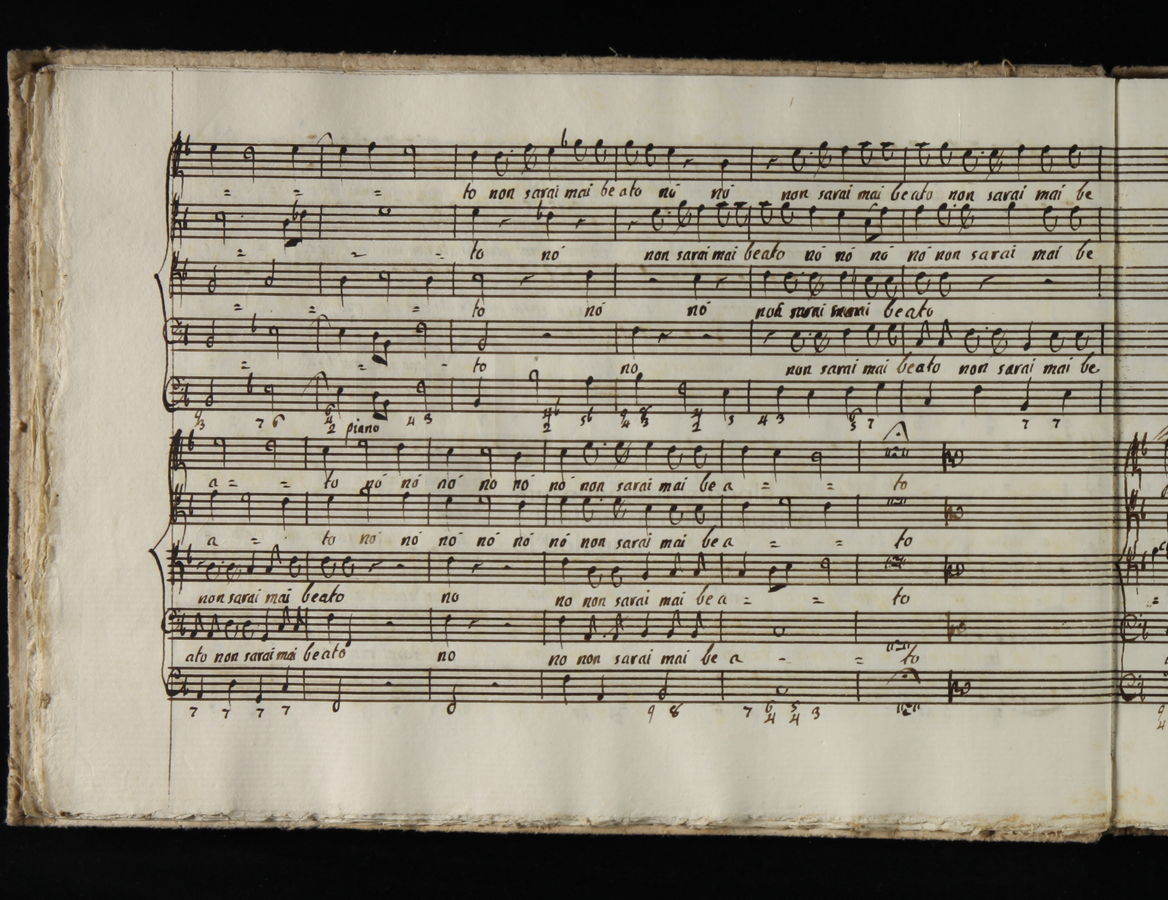 = = = to non sarai mai beato nò nò non sarai mai beato non sarai mai be
= = - to nò non sarai mai beato nò nò nò nò non sarai mai be
= = - to nò nò non sarai mai beato
= = - to no non sarai mai beato non sarai mai be
9 3 7 6 6 4 2 4 3 5 6 9 4 8 3 4 2 5 4 3 6 5 7 7 7
piano
a = = to nò nò nò nò nò nò non sarai mai be a = = to
a = - to nò nò nò nò nò nò non sarai mai be a = = to
non sarai mai beato no no non sarai mai be a = = to
ato non sarai mai beato no no non sarai mai be a - = to
7 7 7 7 9 8 7 6 4 5 4 3